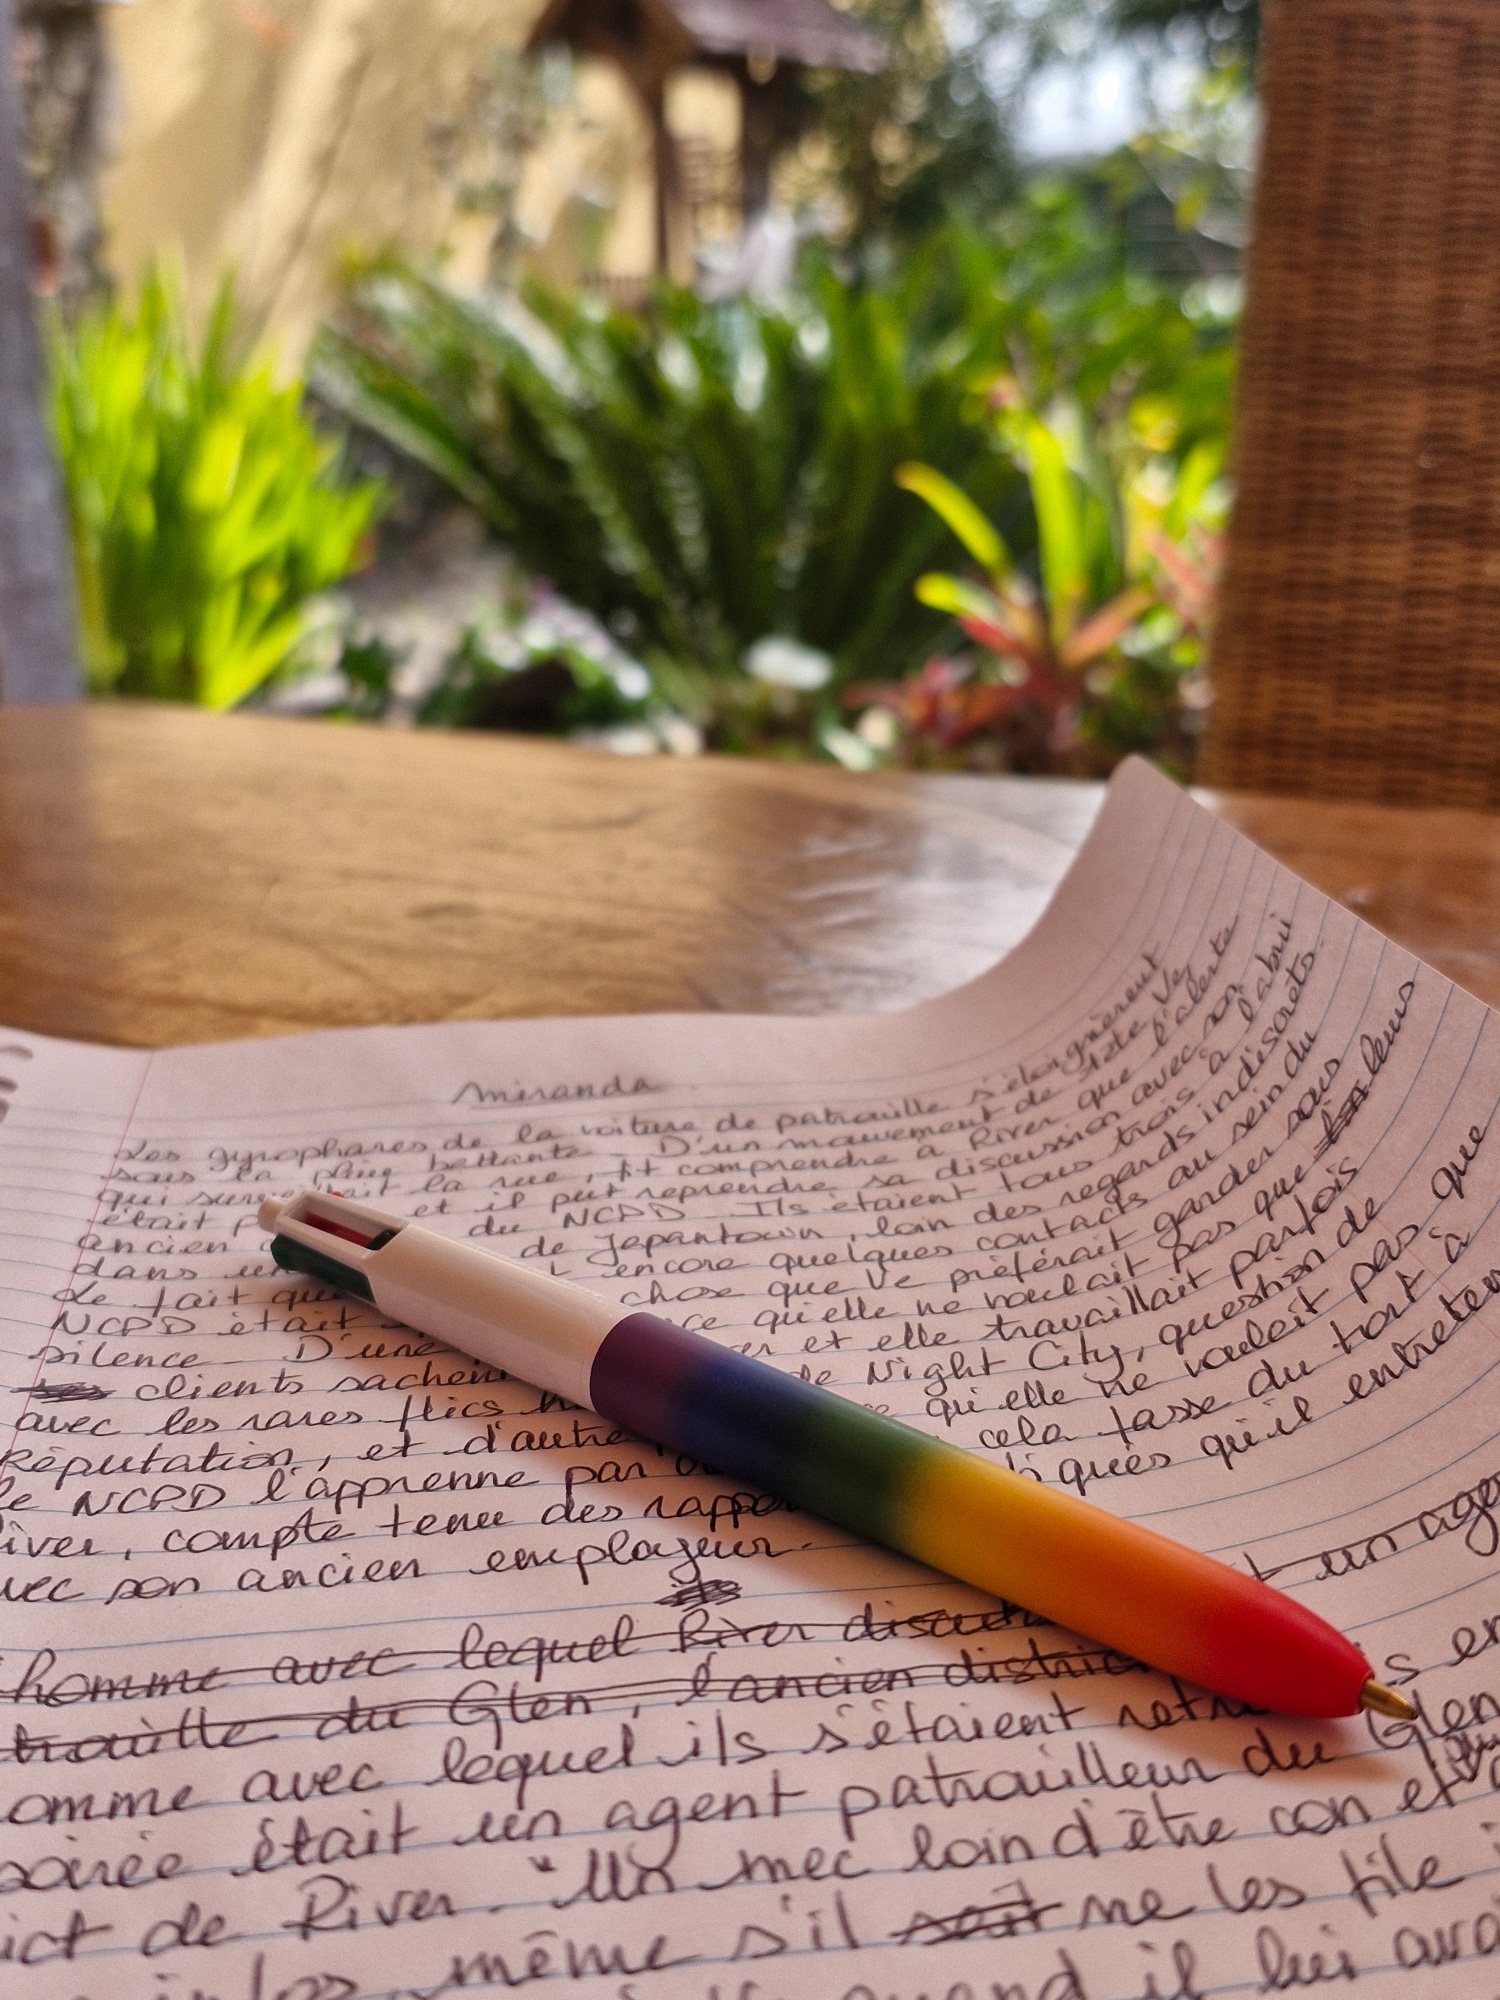 Miranda
Les gyrophares de la voiture de patrouille s'éloignèrent
sous la pluie battante. D'un mouvement de tête Ve,
qui surveillait la rue, fit comprendre à River que l'alerte
était et il put reprendre sa discussion avec son
ancien du NCPD. Ils étaient tous trois à l'abri
dans un de Japantown, loin des regards indiscrets.
Le fait que encore quelques contacts au sein du
NCPD était chose que Ve préférait garder sous
silence. D'une qu'elle ne voulait pas que leurs
clients sachent et elle travaillait parfois
avec les rares flics de Night City, question de
Réputation, et d'autre qu'elle ne voulait pas que
le NCPD l'apprenne par cela fasse du tort à
River, compte tenu des qu'il entreten
avec son ancien employeur.
homme avec lequel River un agen
trouille du Glen, l'ancien district
omme avec lequel ils s'étaient en
soirée était un agent patrouilleur du Glen
ict de River. "Un mec loin d'être con et
même s'il soit ne les file
quand il lui